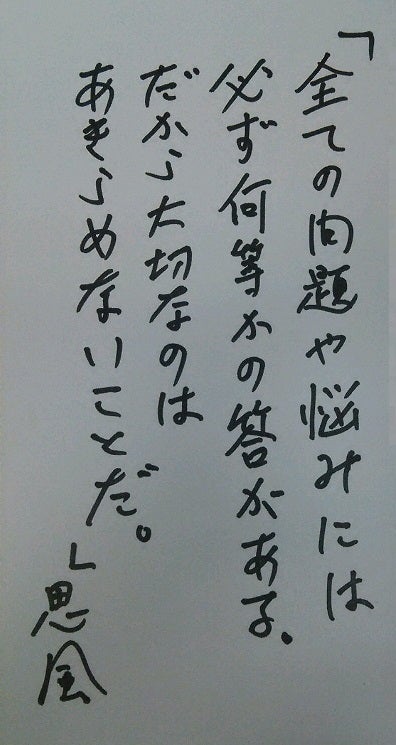 「全ての問題や悩みには
必ず何等かの答がある。
だから大切なのは
あきらめないことだ。」
思風